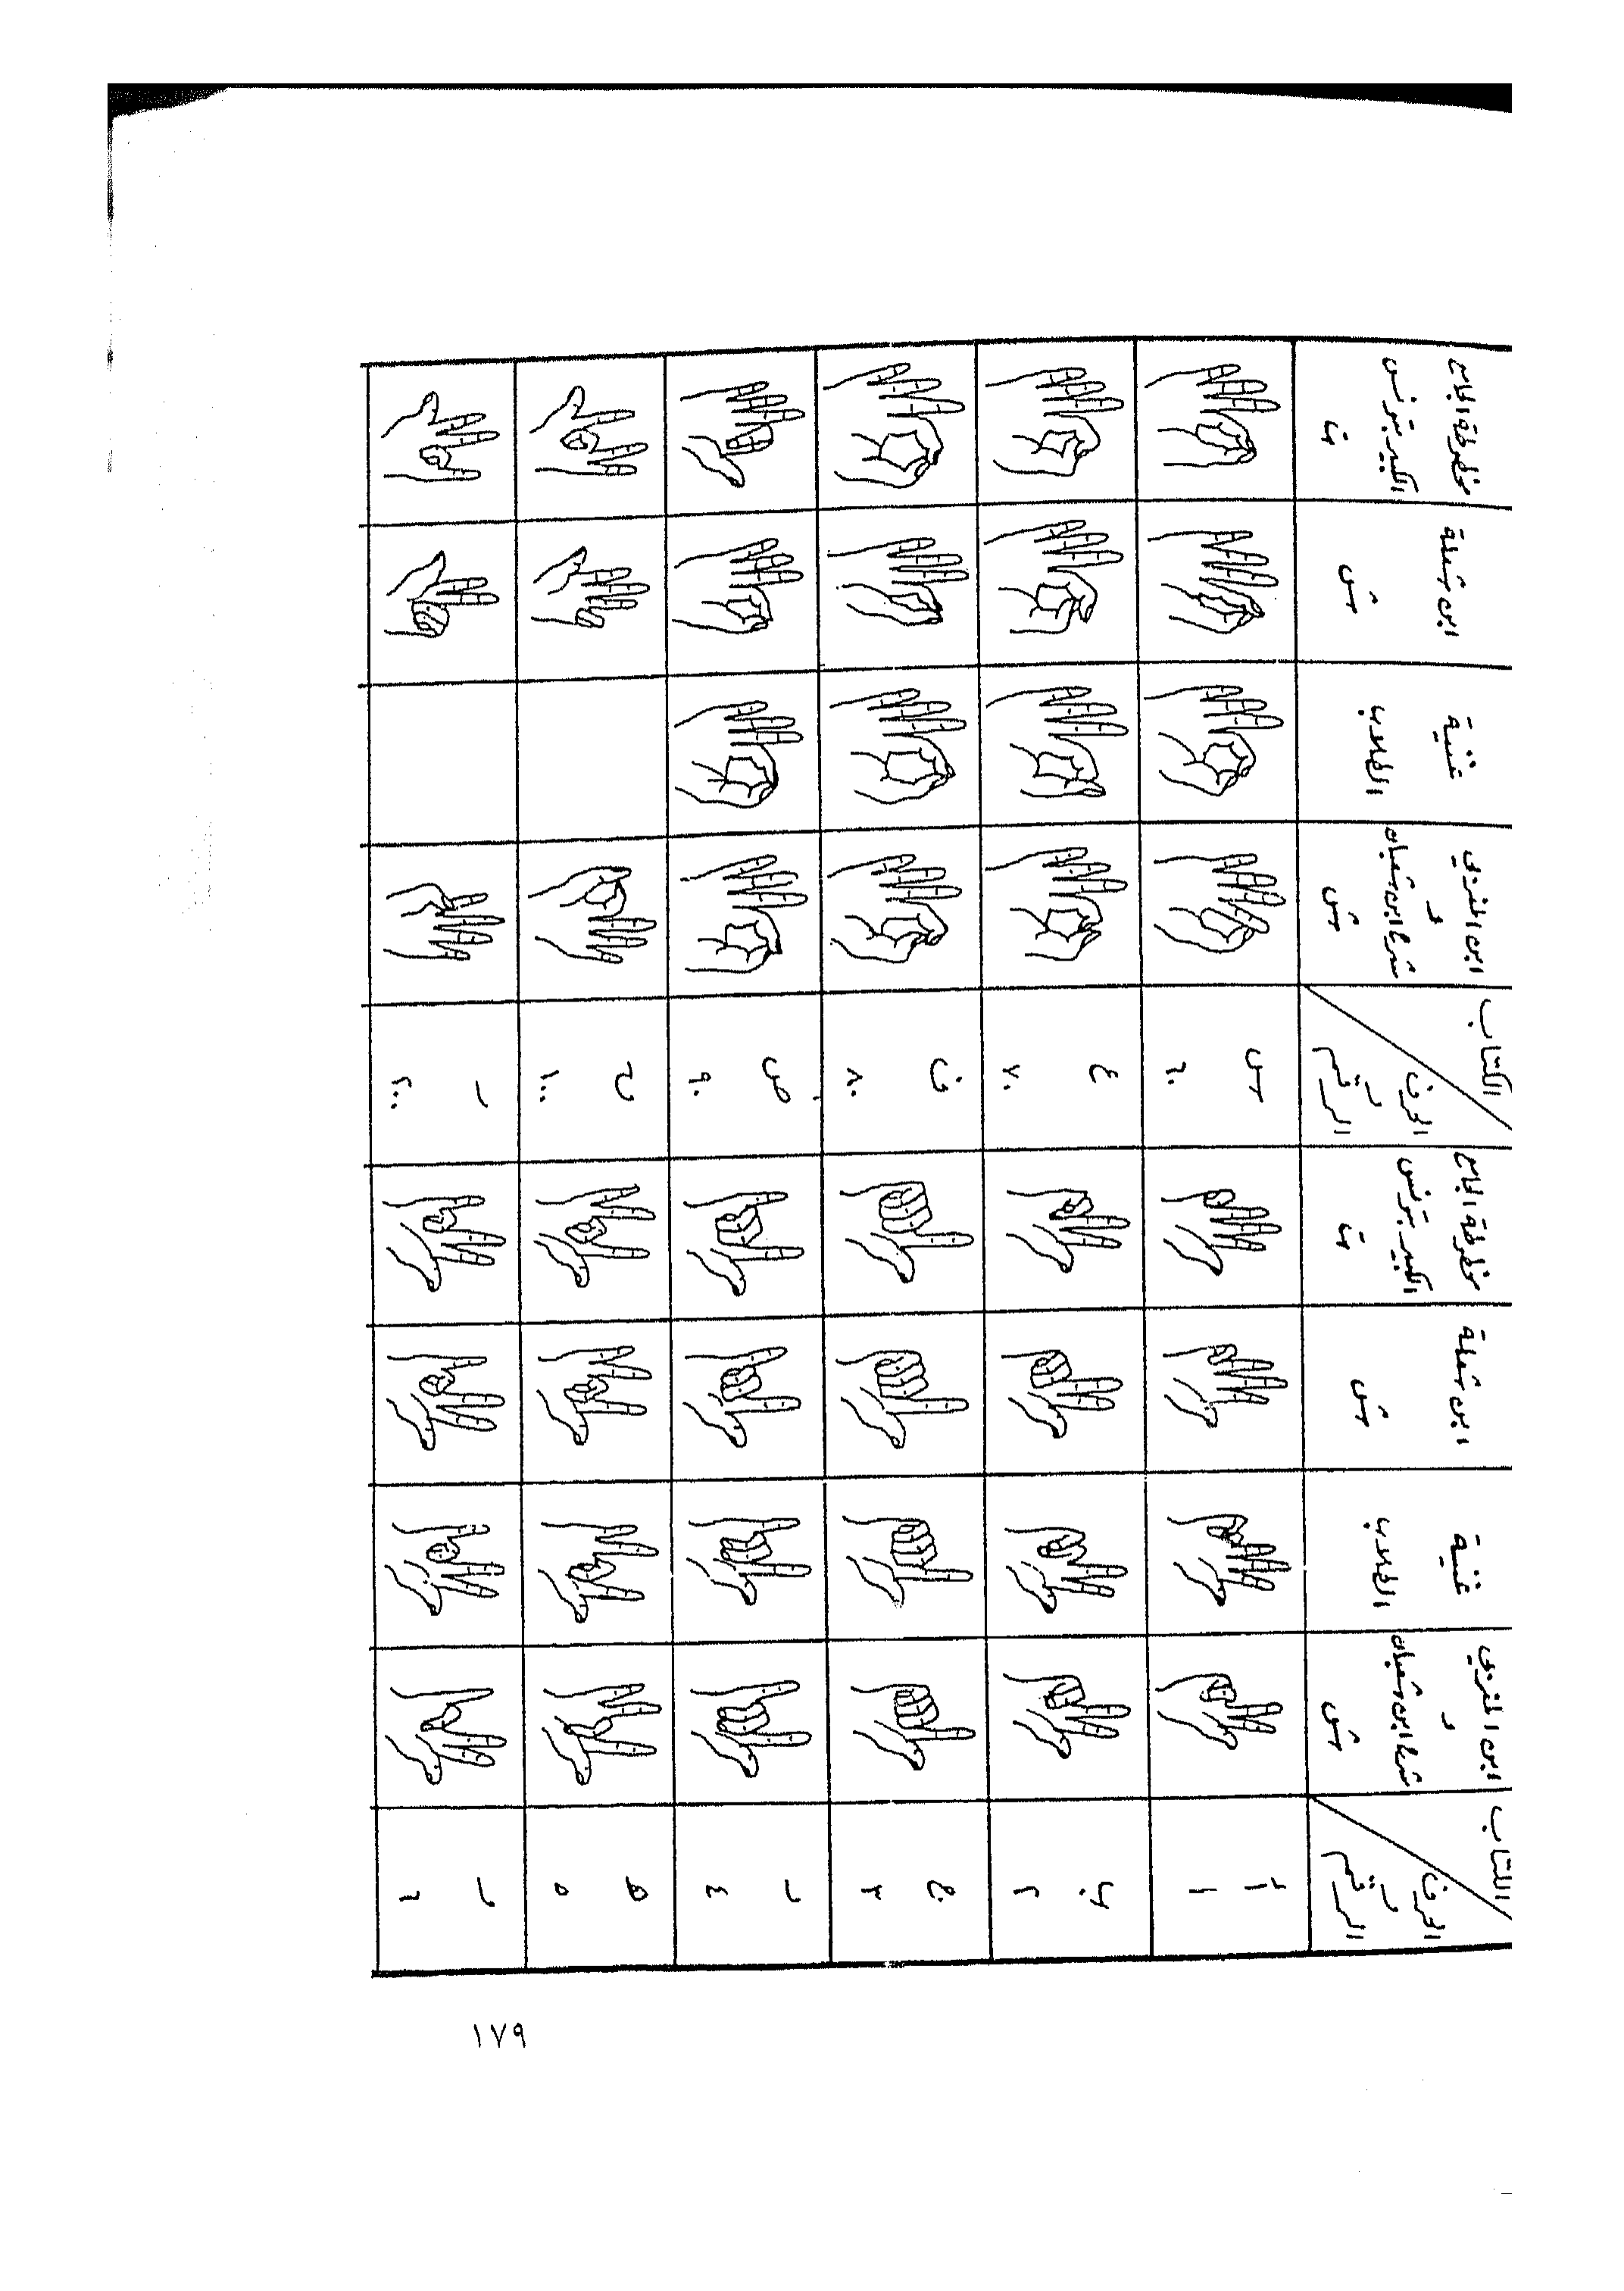 الكتاب
الحرف
و
الرقم
ابن المغربي
و
شرح ابن شعبان
ش
غنية
الطلاب
ابن شعلة
ش
مخطوطة الجامع
الكبير بتونس
ت
الكتاب
الحرف
و
الرقم
ابن المغربي
و
شرح ابن شعبان
ش
غنية
الطلاب
ابن شعلة
ش
مخطوطة الجامع
الكبير بتونس
ت
أ ١
س ٦٠
ب ٢
ع ٧٠
ج ٣
ف ٨٠
د ٤
ص ٩٠
ه ٥
ق ١٠٠
و ٦
ر ٢٠٠
١٧٩